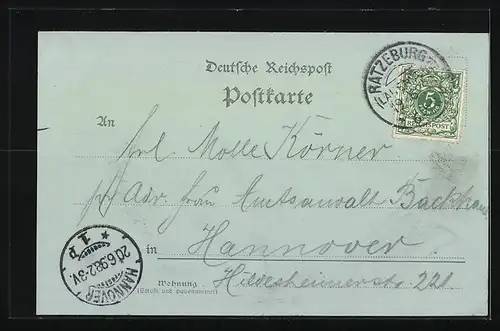 Deutsche Reichspost
Postkarte
RATZEBURG
5
REICHSPOST
An
Frl Molle Körner
pr Adr. Frau Amtsanwalt Backhaus
in Hannover.
Wohnung
(Straße und Hausnummer)
Hildesheimerstr 221.
HANNOVER
20.6.98.2-3.V.
* 1 p